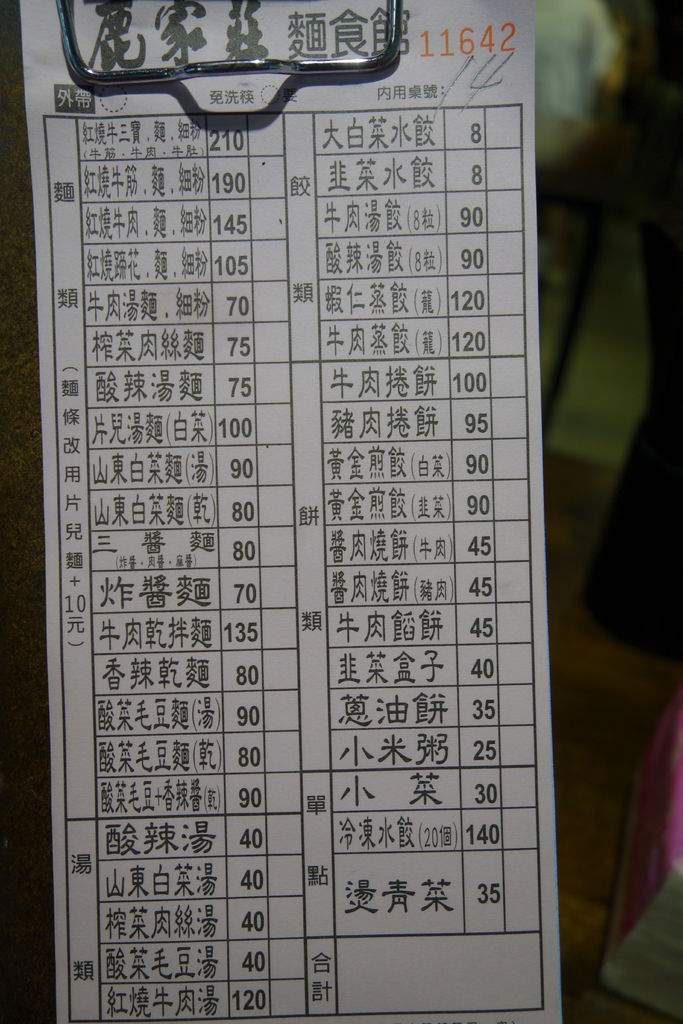 鹿家莊 麵食館 11642
外帶 免洗筷 要 內用桌號: 14
麵類(麵條改用片兒麵+10元)
紅燒牛三寶.麵.細粉 210
(牛筋.牛肉.牛肚)
紅燒牛筋.麵.細粉 190
紅燒牛肉.麵.細粉 145
紅燒蹄花.麵.細粉 105
牛肉湯麵.細粉 70
榨菜肉絲麵 75
酸辣湯麵 75
片兒湯麵(白菜) 100
山東白菜麵(湯) 90
山東白菜麵(乾) 80
三醬麵 80
(炸醬.肉醬.麻醬)
炸醬麵 70
牛肉乾拌麵 135
香辣乾麵 80
酸菜毛豆麵(湯) 90
酸菜毛豆麵(乾) 80
酸菜毛豆+香辣醬(乾) 90
湯類
酸辣湯 40
山東白菜湯 40
榨菜肉絲湯 40
酸菜毛豆湯 40
紅燒牛肉湯 120
餃類
大白菜水餃 8
韭菜水餃 8
牛肉湯餃(8粒) 90
酸辣湯餃(8粒) 90
蝦仁蒸餃(籠) 120
牛肉蒸餃(籠) 120
餅類
牛肉捲餅 100
豬肉捲餅 95
黃金煎餃(白菜) 90
黃金煎餃(韭菜) 90
醬肉燒餅(牛肉) 45
醬肉燒餅(豬肉) 45
牛肉餡餅 45
韭菜盒子 40
蔥油餅 35
小米粥 25
單點
小菜 30
冷凍水餃(20個) 140
燙青菜 35
合計